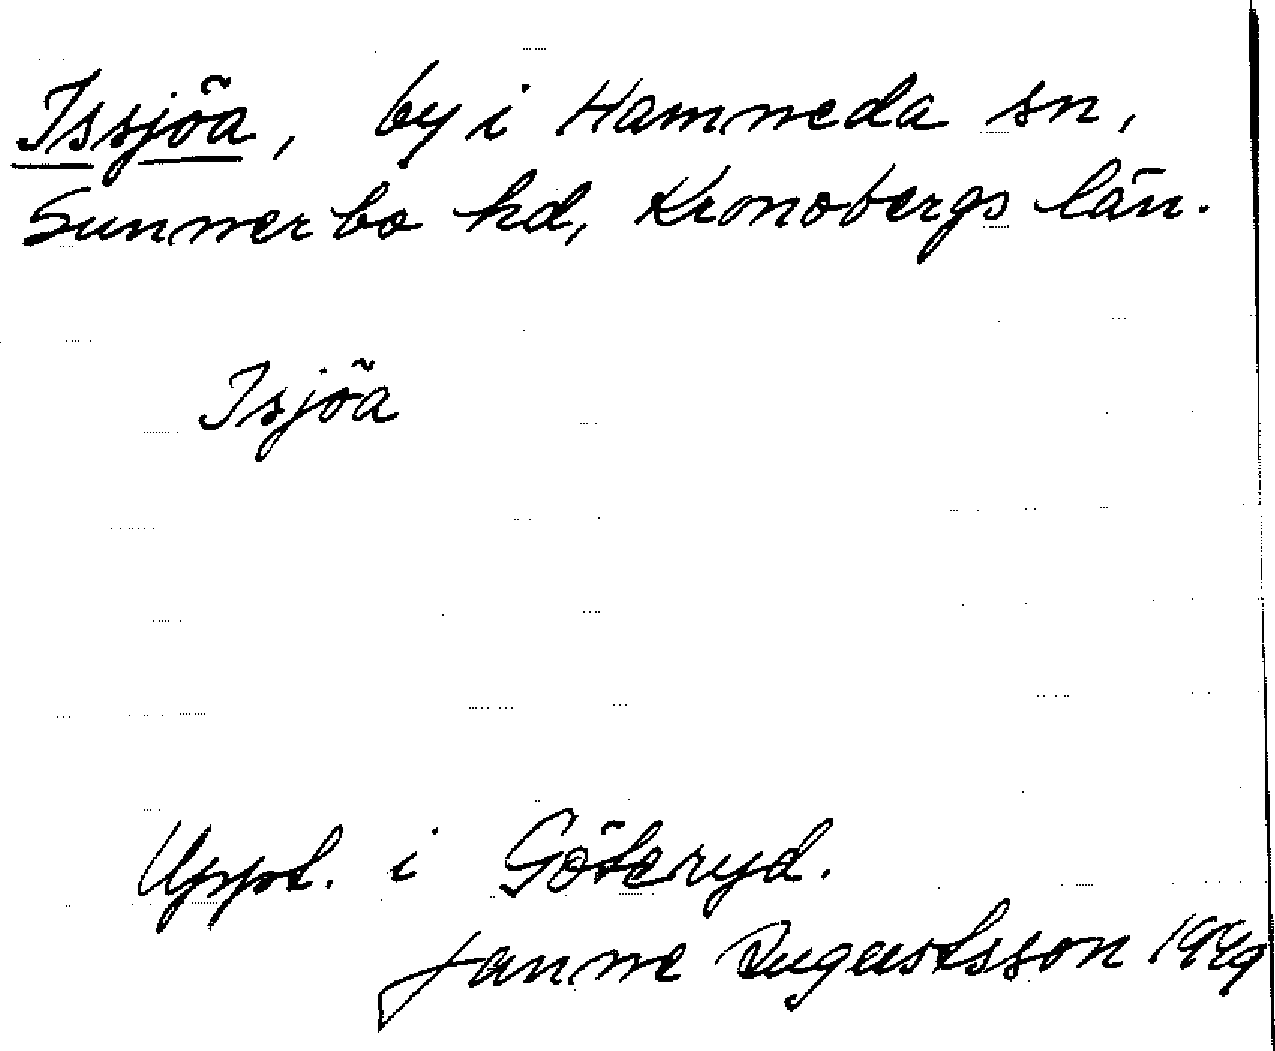 Issjöa, by i Hamneda sn,
Sunnerbo hd, Kronobergs län.
Isjöa
Uppt. i Göteryd.
Janne Augustsson 1949